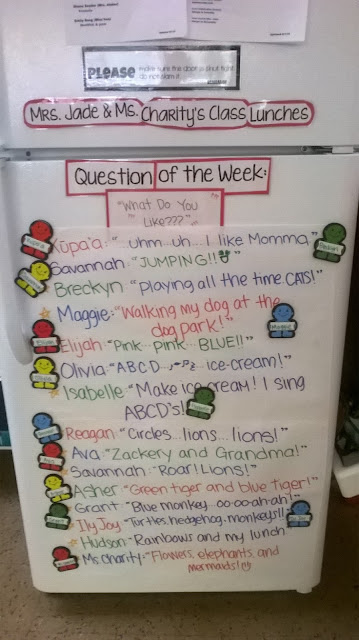 PLEASE make sure this door is shut tight do not slam it
Mrs. Jade & Ms. Charity's Class Lunches
Question of the Week:
"What Do You Like???"
Kupa'a: "...uhm...uh... I like Momma."
Savannah: "JUMPING!!"
Breckyn: "playing all the time. CATS!"
Maggie: "Walking my dog at the
dog park!"
Elijah: "Pink...pink...BLUE!!"
Olivia: "ABCD... ice-cream!"
Isabelle: "Make ice cream! I sing
ABCD's!"
Reagan: "Circles...lions...lions!"
Ava: "Zackery and Grandma!"
Savannah: "Roar! Lions!"
Asher: "Green tiger and blue tiger!"
Grant: "Blue monkey. oo-oo-ah-ah!"
Ily Joy: "Turtles, hedgehog, monkeys!!"
Hudson: "Rainbows and my lunch"
Ms. Charity: "Flowers, elephants, and
mermaids!"